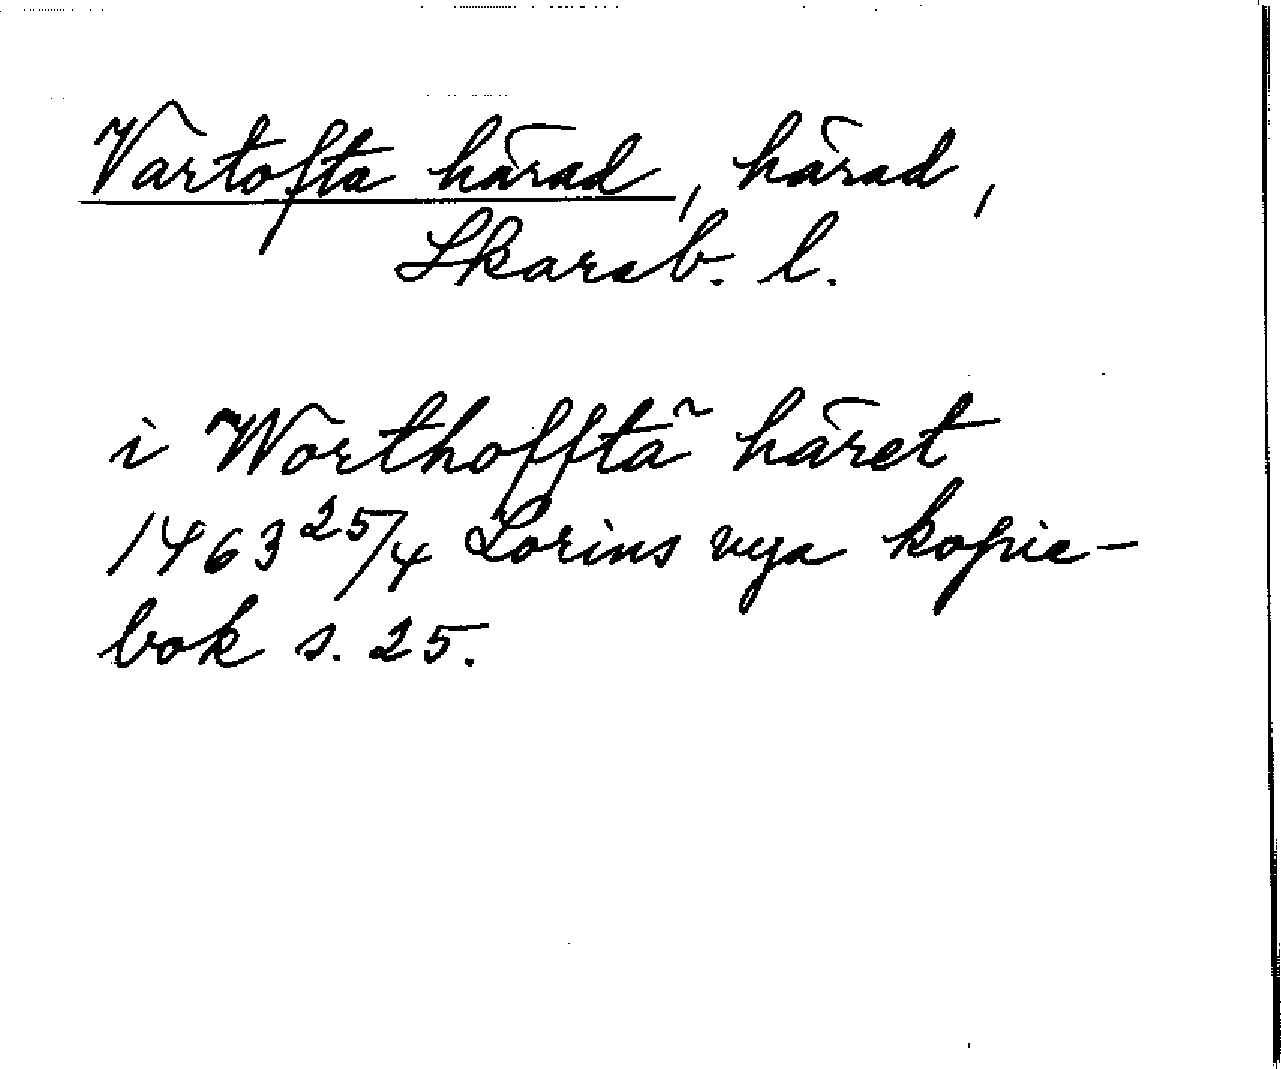 Vartofta härad, härad,
Skarab. l.
i Wörthofftä häret
1463 25/4 Lorins nya kopie-
bok s. 25.